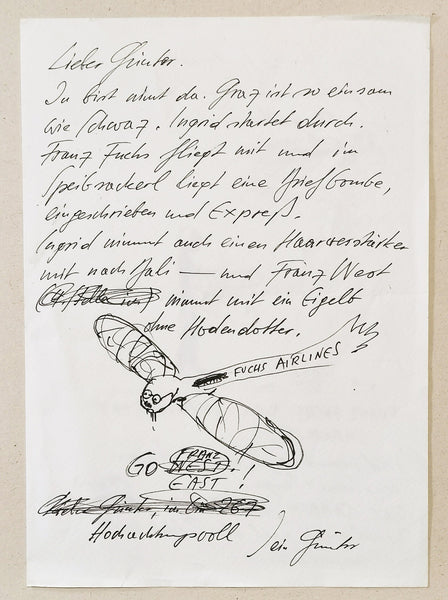 Lieber Günter.
Du bist nicht da. Graz ist so einsam
wie Schwaz. Ingrid startet durch.
Franz Fuchs fliegt mit und im
Speibsackerl liegt eine Briefbombe,
eingeschrieben und Expreß.
Ingrid nimmt auch einen Haarverstärker
mit nach Bali — und Franz West
nimmt mit ein Eigelb
ohne Hodendotter.
FUCHS AIRLINES
GO FRANZ
WEST.!
EAST!
Hochachtungsvoll
Dein Günter